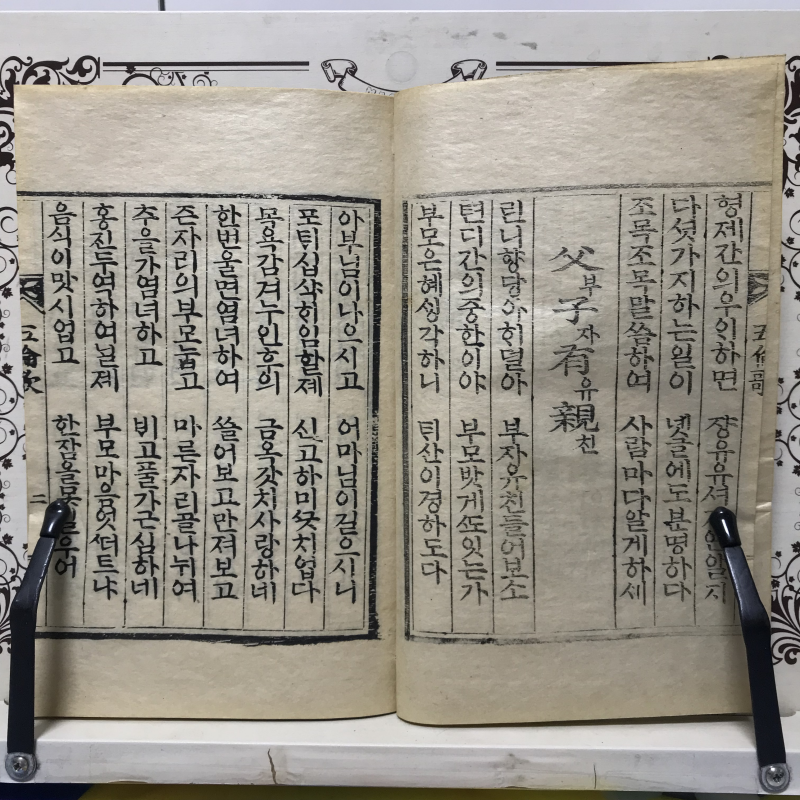 五倫歌
형제간의우의하면 쟝유유셔
다섯가지하는일이 녯글에도분명하다
조목조목말씀하여 사람마다알게하세
父부子자有유親친
린니향당아히덜아 부자유친들어보소
텬디간의중한이야 부모밧게ᄯᅩ잇는가
부모은혜ᄉᆡᆼ각하니 ᄐᆡ산이경하도다
아부님이나으시고 어마님이길으시니
포ᄐᆡ십삭히임할졔 신고하미ᄭᅳᆺ치업다
목욕감겨누인후의 금옥갓치사랑하네
한번울면염녀하여 쓸어보고만져보고
즌자리의부모눕고 마른자리골나뉘여
추울가염녀하고 비고풀가근심하네
홍진두역하여닐졔 부모마음엇더트냐
음식이맛시업고 한잠을못일우어
五倫歌 二